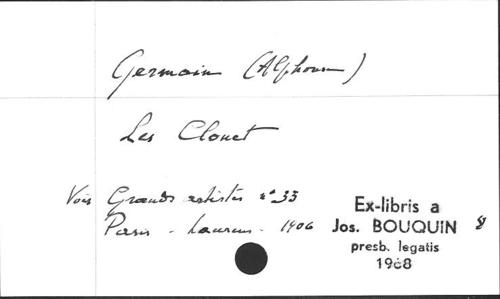 Germain (Alphonse)
Les Clouet
Voir Grands artistes n° 33
Paris - Laurens - 1906
Ex-libris a
Jos. BOUQUIN 8
presb. legatis
1968